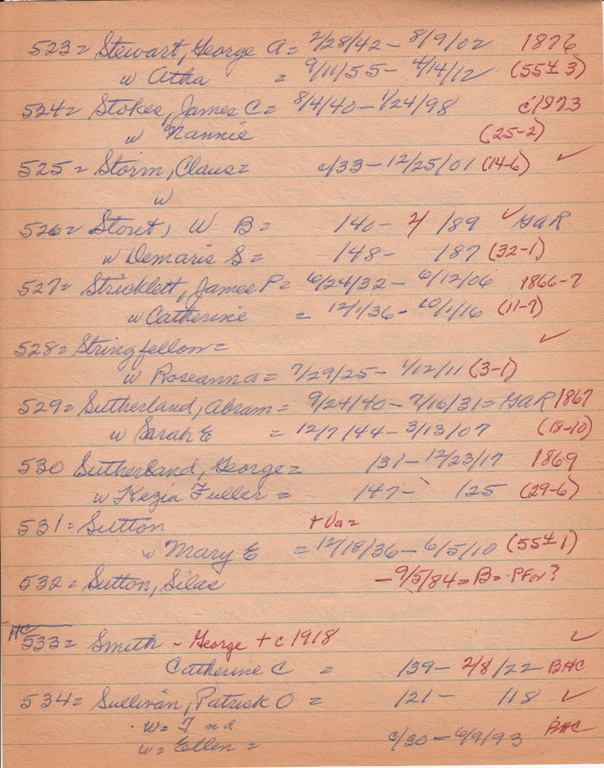 523= Stewart, George A = 2/28/42 - 8/9/02 1876
w Atha = 9/11/55 - 4/14/12 (55± 3)
524= Stokes, James C = 8/4/40 - 1/24/98 c/1873
w Nannie (25-2)
525= Storm, Claus = c/33 - 12/25/01 (14-6) ✓
w
526= Stout, W B = 140 - 2/ 189 ✓ GAR
w Demaris S = 148 - 187 (32-1)
527= Stricklett, James P = 6/24/32 - 6/12/06 1866-7
w Catherine = 12/1/36 - 10/1/16 (11-7)
528= Stringfellow = ✓
w Roseanna = 7/29/25 - 1/12/11 (3-1)
529= Sutherland, Abram = 9/24/40 - 7/16/31 = GAR 1867
w Sarah E = 12/7/44 - 3/13/07 (18-10)
530 Sutherland, George = 131 - 12/23/17 1869
w Kezia Fuller = 147 - 125 (29-6)
531= Sutton + Va =
w Mary E = 12/18/36 - 6/5/10 (55± 1)
532= Sutton, Silas - 9/5/84 = B = P For?
HC
533= Smith - George + c 1918 ✓
Catherine C = 139 - 2/8/22 BHC
534= Sullivan, Patrick O = 121 - 118 ✓
w = I nd
w = Ellen = c/30 - 6/9/93 BHC